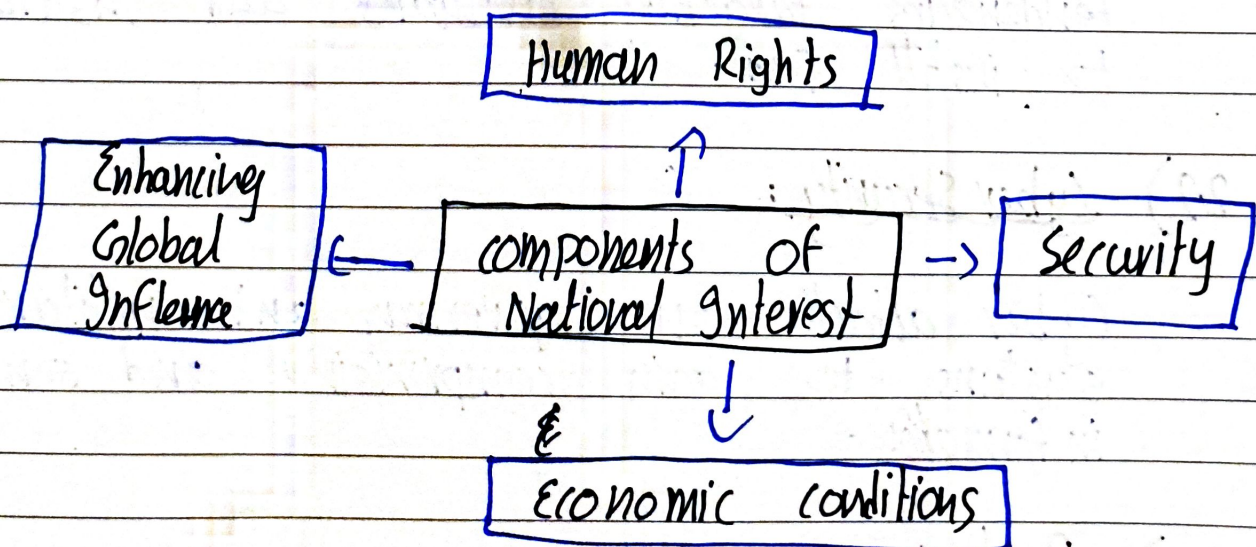 Human Rights
Enhancing
Global
Influence
components of
National Interest
Security
Economic conditions